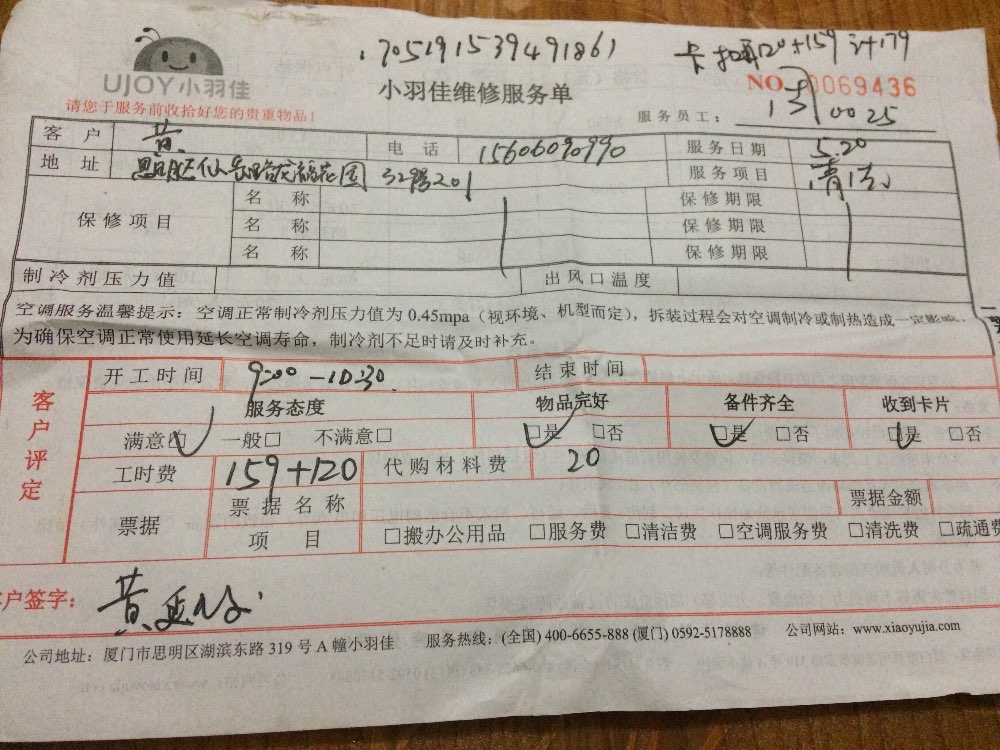 1705191539491861
卡扣 120+159 计179
UJOY小羽佳
小羽佳维修服务单
NO. 0069436
请您于服务前收拾好您的贵重物品!
服务员工: 0025
客户 黄 电话 15606090990 服务日期 5.20
地址 仙岳路 花园 329 201 服务项目 清洁
保修项目 名称 保修期限
名称 保修期限
名称 保修期限
制冷剂压力值 出风口温度
空调服务温馨提示:空调正常制冷剂压力值为 0.45mpa(视环境、机型而定),拆装过程会对空调制冷或制热造成一定影响,
为确保空调正常使用延长空调寿命,制冷剂不足时请及时补充。
客户评定
开工时间 9:00-10:30 结束时间
服务态度 物品完好 备件齐全 收到卡片
满意□ 一般□ 不满意□ □是 □否 □是 □否 □是 □否
工时费 159+120 代购材料费 20
票据 票据名称 票据金额
项目 □搬办公用品 □服务费 □清洁费 □空调服务费 □清洗费 □疏通费
客户签字: 黄
公司地址:厦门市思明区湖滨东路 319 号 A 幢小羽佳 服务热线:(全国) 400-6655-888 (厦门) 0592-5178888 公司网站:www.xiaoyujia.com